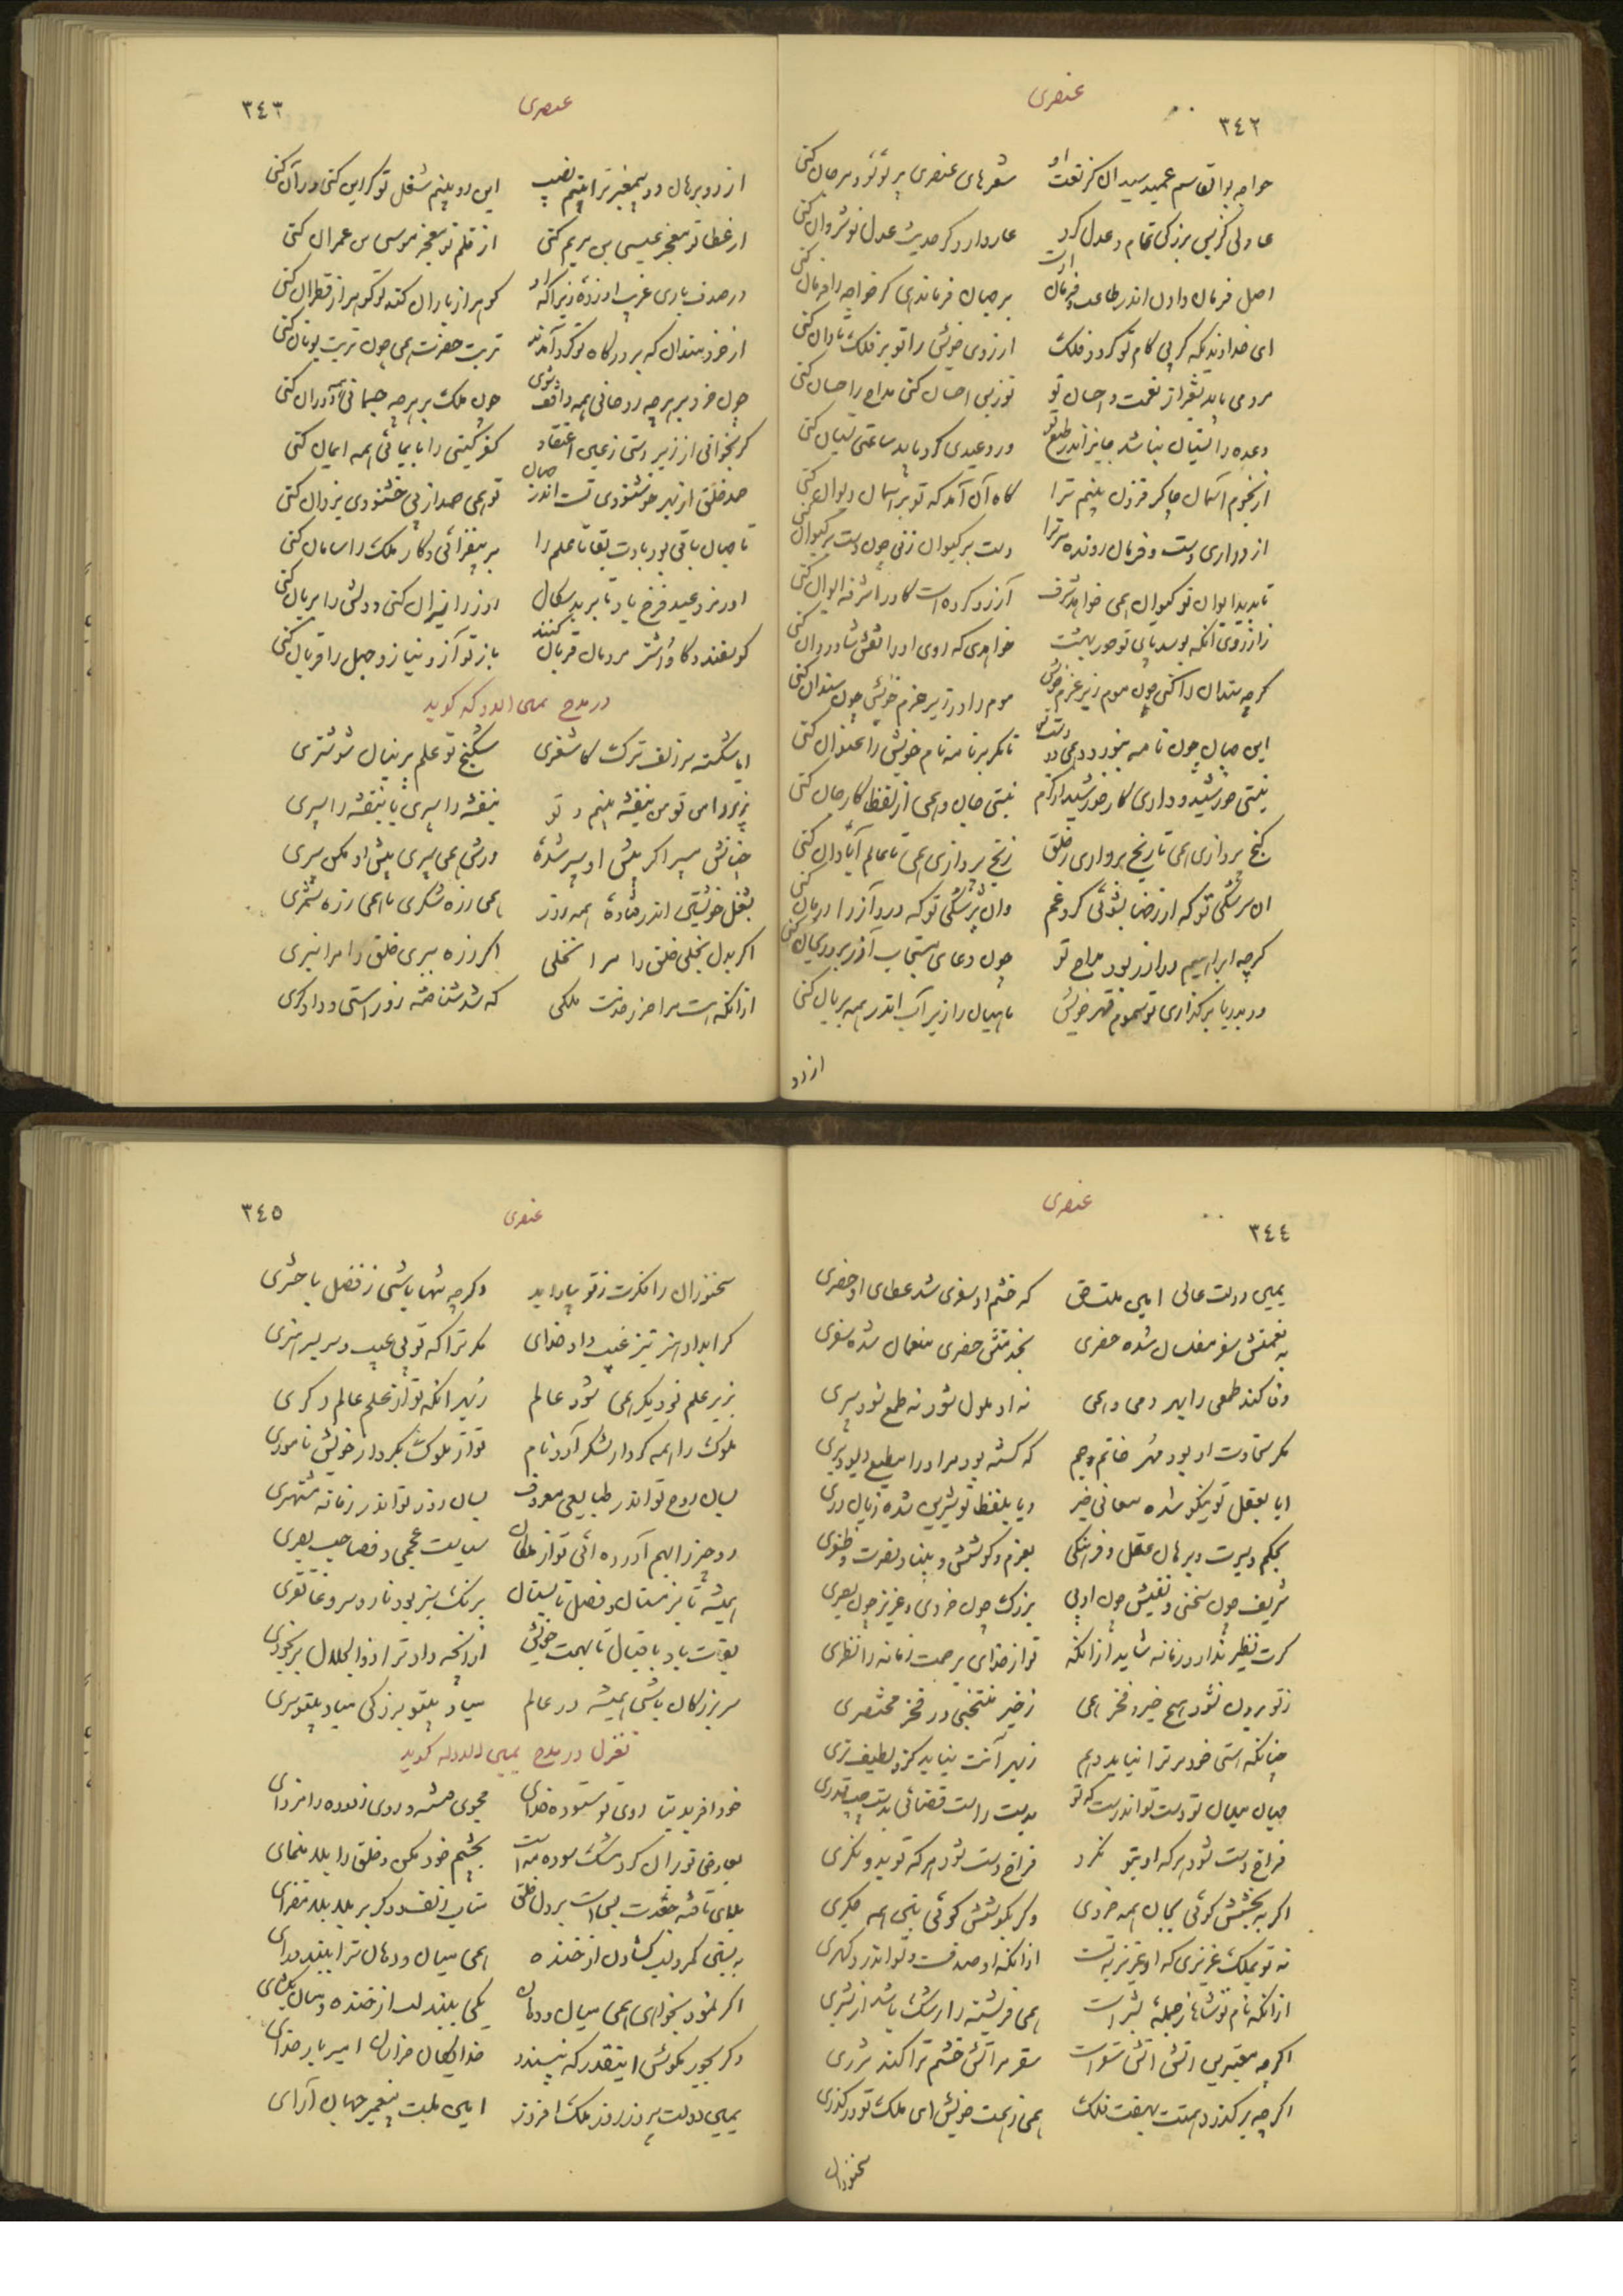 عنصری
٣٤٢
خواجه بوالقاسم عمید سید ان کز نعت او شعرهای عنصری پر لؤلؤ و مرجان کنی
عادلی کز بس بزرگی تمام و عدل کرد عار دارد گر حدیث عدل نوشروان کنی
اصل فرمان دادن اندر طاعت و فرمان اوست بر جهان فرماندهی گر خواجه را فرمان کنی
ای خداوندیکه گر بی کام تو گردد فلک ارزوی خویش را تو بر فلک تاوان کنی
مردمی باید بشر از نعمت و احسان تو تو ز بس احسان کنی مداح را حسان کنی
وعده را نسیان نباشد جایز اندر طبع تو ور وعیدی کرد باید ساعتی نسیان کنی
از نجوم آسمان چاکر فزون بینم ترا گاه آن آمد که تو بر آسمان دیوان کنی
از دواری دست و فرمان رونده مر ترا دست بر کیوان زنی چون دست بر کیوان کنی
تا بدید ایوان تو کیوان همی خواهد شرف آرزو کرده است کاو را شرفه ایوان کنی
ز ارزوی انکه بوسد پای تو حور بهشت خواهدی که روی او را نقش شادروان کنی
گرچه سندان را کنی چون موم زیر عزم خویش موم را در زیر حزم خویش چون سندان کنی
این جهان چون نامه بنوردد همی دو دست تو تا مگر بر نامه نام خویش را عنوان کنی
نیستی خورشید و داری کار خورشید از کرم نیستی جان و همی از لفظ کار جان کنی
گنج پردازی همی تا رنج برداری ز خلق رنج پردازی همی تا عالم آبادان کنی
ان سرشکی تو که از رضا بشوئی گرد غم وان پزشکی تو که درد آز را درمان کنی
گرچه ابراهیم در آذر بود مداح تو چون دعای مستجاب آذر برو ریحان کنی
ور بدریا بر گذاری تو سموم قهر خویش ماهیان را زیر آب اندر همه بریان کنی
از دو
عنصری
٣٤٣
از دو برهان دو پیمغبر ترا بینم نصیب این دو بینم شغل تو گر این کنی ور آن کنی
از عطا تو معجز عیسی بن مریم کنی از قلم تو معجز موسی بن عمران کنی
در صدف باری غریب اوژده زیرا که او گوهر از باران کند تو گوهر از قطران کنی
از خردمندان که بر درگاه تو گرد آمدند تربت حضرت همی چون تربت یونان کنی
چون خرد بر هر چه روحانی همه واقف شوی چون ملک بر هر چه جسمانی همه دوران کنی
گر بخوانی از زبر رستی ز عیسی اعتقاد کفر گیتی را بایمائی همه ایمان کنی
صد خلق از بهر خوشنودی تست اندر جهان تو همی صد از پی خشنودی یزدان کنی
تا جهان باقی بود بادت بقا تا علم را بر بیفزائی و کار ملک را سامان کنی
اورمزد و عید فرخ باد تا بر بدسگال روز را نیران کنی و دلش را بریان کنی
گوسفند و گاو و اشتر مردمان قربان کنند باز تو آز و نیاز و جهل را قربان کنی
در مدح یمین الدوله گوید
ایا شکسته سر زلف ترک کاشغری شکنج تو علم پرنیان شوشتری
بزیر دامن تو من بنفشه بینم و تو بنفشه را سپری یا بنفشه را سپری
چنانش سپرا کز پیش او سپر شدهٔ ورش همی سپری پیش او مکن سپری
بفعل خویشتن اندر فتادهٔ همه روز همی زره شکری یا همی زره شمری
اگر بدل بخلی خلق را مرا نخلی اگر زره ببری خلق را مرا نبری
از انکه هست مرا حرز خدمت ملکی که شد شناخته زو راستی و دادگری
عنصری
٣٤٤
یمین دولت عالی امین ملت حق که خشم او سفری شد عطای او حضری
به نعمتش سفر مفلسان شده حضری بخدمتش حضری منعمان شده سفری
وفا کند طمعی را بهر دمی و همی نه او ملول شود نه طمع شود سپری
مگر سخاوت او بود مهر خاتم و جم که گشته بود مر او را مطیع دیو و پری
ایا بعقل تو نیکو شده معانی خیر و یا بلفظ تو شیرین شده زبان دری
بحکم و سیرت و برهان عقل و فرهنگی بعزم و کوشش و بنیاد نصرت و ظفری
شریف چون سخنی و نفیس چون ادبی بزرگ چون خردی و عزیز چون بصری
گرت نظیر ندارد زمانه شاید از انکه تو از خدای برحمت زمانه را نظری
ز تو برون نشود هیچ خیر و فخر همی ز خیر منتخبی و ز فخر مختصری
چنانکه هستی خود مر ترا نیابد وهم ز بهر آنت نیابد کزو لطیف تری
میان سیاه تو دست تو اندرست که تو بدست راست قضائی بدست چپ قدری
فراخ دست شود هر که او بتو نگرد فراخ دست شود هر که تو بدو نگری
اگر به بخشش گوئی بجان همه خردی وگر بکوشش گوئی بتن همه جگری
نه تو بملک عزیزی که او عزیز بتست از انکه او صدفست و تو اندرو گهری
از انکه نام تو شاها ز جملهٔ بشر است همی فریشته را رشک باشد از بشری
اگرچه سهمترین اتش اتش سقر است سقر مر آتش خشم ترا کند شرری
اگرچه برگذرد همتت ز هفت فلک همی ز همت خویش ای ملک تو درگذری
سخنوران
عنصری
٣٤٥
سخنوران را فکرت ز تو بیاراید وگرچه تنها باشی ز فضل با حشری
کرا بداد هنر نیز عیب داد خدای مگر ترا که تو بی عیب و سربسر هنری
بزیر علم نو دیگر همی شود عالم ز بهر انکه تو از علم عالم دگری
ملوک را همه کردار لشکر آرد نام تو از ملوک بکردار خویش ناموری
بسان روح تو اندر طبایعی معروف بسان روز تو اندر زمانه مشتهری
دو چیز را بهم آورده ائی تو از ملکان سیاست عجمی و فصاحت بصری
همیشه تا بزمستان و فصل تابستان برنگ سبز بود نار و سرو غاتفری
بقات باد باقبال تا بهمت خویش از انچه داد ترا ذو الجلال برخوری
سر بزرگان باشی همیشه در عالم مباد بیتو بزرگی مباد بیتو سری
تغزل در مدح یمین الدوله گوید
خود افرید بتا روی تو ستوده خدای مجوی مشک و روی زدوده را مزدای
بعارض تو بر آن گرد مشک سوده بس است بچشم خود مکن و خلق را بلا منمای
بلای تافته جعدت بس است بر دل خلق متاب زلف و دگر بر بلا بلا مفزای
به بستن کمر و لب گشادن از خنده همی میان و دهان ترا ببیند رای
اگر نمود بخواهی همی میان و دهان یکی ببند لب از خنده و میان بگشای
وگر بجور بکوش اینقدر که نپسندد خدایگان خراسان امیر بار خدای
یمین دولت پیروز روز ملک افروز امین ملت پیغمبر جهان آرای